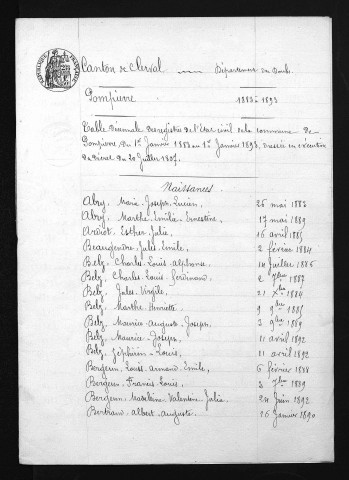 Canton de Clerval Département du Doubs
Pompierre 1883 à 1893
Table Décennale des registres de l'Etat civil de la commune de
Pompierre du 1er Janvier 1883 au 1er Janvier 1893, dressée en exécution
du Décret du 20 Juillet 1807.
Naissances
Abry, Marie Joseph Lucien 26 mai 1883
Abry, Marthe Emilie Ernestine 17 mai 1889
Esther Julia 16 avril 1885
Beaugendre Jules Emile 2 février 1884
Belz, Charles Louis Alphonse 14 Juillet 1886
Belz, Charles Louis Ferdinand 2 7bre 1887
Belz, Jules Virgile 21 Xbre 1884
Belz, Marthe Henriette 9 9bre 1885
Belz, Maurice Auguste Joseph 3 9bre 1889
Belz, Maurice Joseph 11 avril 1892
Belz, Zéphirin Louis 11 avril 1892
Bergeron, Louis Armand Emile 6 février 1888
Bergeron Francis Louis 3 7bre 1889
Bergeron Madeleine Valentine Julia 24 Juin 1892
Bertrand Albert Auguste 26 Janvier 1890